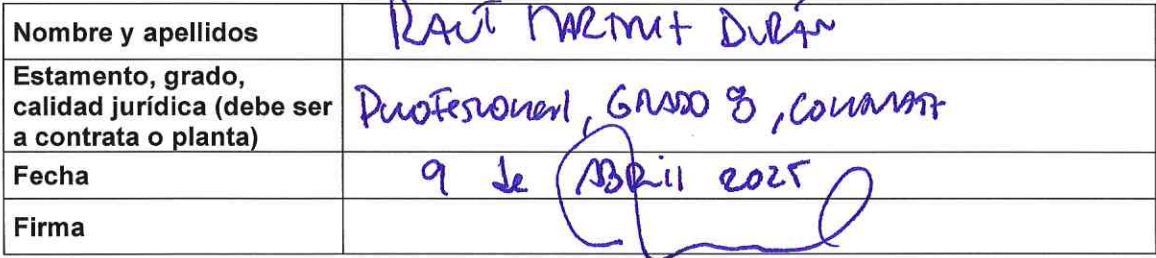 Nombre y apellidos
RAÚL MARTÍNEZ DURÁN
Estamento, grado,
calidad jurídica (debe ser
a contrata o planta)
Profesional, GRADO 8, CONTRATA
Fecha
9 de ABRil 2025
Firma